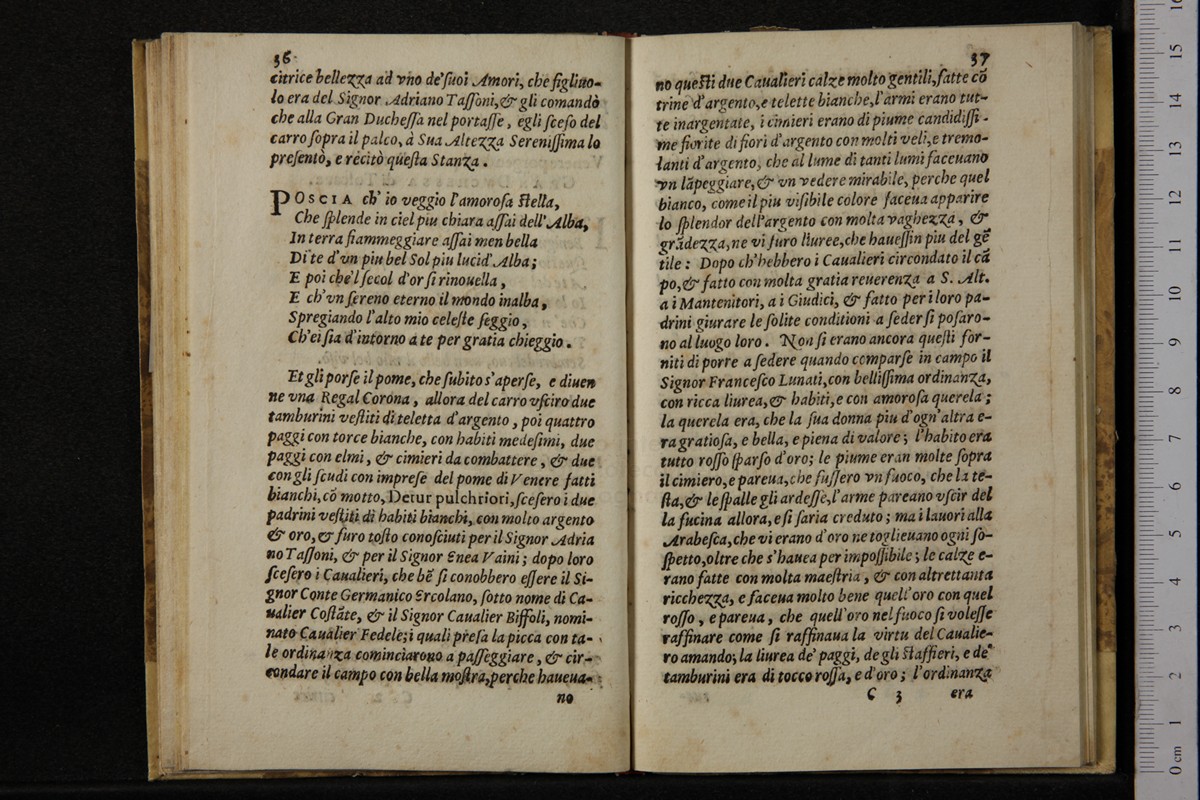 36
citrice bellezza ad vno de'ſuoi Amori, che figliuo-
lo era del Signor Adriano Taſſoni, & gli comandò
che alla Gran Ducheſſa nel portaſſe, egli ſceſo del
carro ſopra il palco, à Sua Altezza Sereniſſima lo
preſentò, e recitò queſta Stanza.
POSCIA ch' io veggio l'amoroſa ſtella,
Che ſplende in ciel piu chiara aſſai dell'Alba,
In terra fiammeggiare aſſai men bella
Di te d'vn piu bel Sol piu lucid'Alba;
E poi che'l ſecol d'or ſi rinouella,
E ch'vn ſereno eterno il mondo inalba,
Spregiando l'alto mio celeſte ſeggio,
Ch'ei ſia d'intorno a te per gratia chieggio.
Et gli porſe il pome, che ſubito s'aperſe, e diuen
ne vna Regal Corona, allora del carro vſciro due
tamburini veſtiti di teletta d'argento, poi quattro
paggi con torce bianche, con habiti medeſimi, due
paggi con elmi, & cimieri da combattere, & due
con gli ſcudi con impreſe del pome di Venere fatti
bianchi, cõ motto, Detur pulchriori, ſceſero i due
padrini veſtiti di habiti bianchi, con molto argento
& oro, & furo toſto conoſciuti per il Signor Adria
no Taſſoni, & per il Signor Enea Vaini; dopo loro
ſceſero i Caualieri, che bẽ ſi conobbero eſſere il Si-
gnor Conte Germanico Ercolano, ſotto nome di Ca-
ualier Coſtãte, & il Signor Caualier Biffoli, nomi-
nato Caualier Fedele; i quali preſa la picca con ta-
le ordinanza cominciarono a paſſeggiare, & cir-
condare il campo con bella moſtra, perche haueua-
no
37
no queſti due Caualieri calze molto gentili, fatte cõ
trine d'argento, e telette bianche, l'armi erano tut-
te inargentate, i cimieri erano di piume candidiſſi-
me fiorite di fiori d'argento con molti veli, e tremo-
lanti d'argento, che al lume di tanti lumi faceuano
vn lãpeggiare, & vn vedere mirabile, perche quel
bianco, come il piu viſibile colore faceua apparire
lo ſplendor dell'argento con molta vaghezza, &
grãdezza, ne vi furo liuree, che haueſſin piu del gẽ
tile: Dopo ch'hebbero i Caualieri circondato il cã
po, & fatto con molta gratia reuerenza a S. Alt.
a i Mantenitori, a i Giudici, & fatto per i loro pa-
drini giurare le ſolite conditioni a ſeder ſi poſaro-
no al luogo loro. Non ſi erano ancora queſti for-
niti di porre a ſedere quando comparſe in campo il
Signor Franceſco Lunati, con belliſſima ordinanza,
con ricca liurea, & habiti, e con amoroſa querela;
la querela era, che la ſua donna piu d'ogn'altra e-
ra gratioſa, e bella, e piena di valore; l'habito era
tutto roſſo ſparſo d'oro; le piume eran molte ſopra
il cimiero, e pareua, che fuſſero vn fuoco, che la te-
ſta, & le ſpalle gli ardeſſe, l'arme pareano vſcir del
la fucina allora, e ſi ſaria creduto; ma i lauori alla
Arabeſca, che vi erano d'oro ne toglieuano ogni ſo-
ſpetto, oltre che s'hauea per impoſſibile; le calze e-
rano fatte con molta maeſtria, & con altrettanta
ricchezza, e faceua molto bene quell'oro con quel
roſſo, e pareua, che quell'oro nel fuoco ſi voleſſe
raffinare come ſi raffinaua la virtu del Caualie-
ro amando; la liurea de' paggi, de gli ſtaffieri, e de'
tamburini era di tocco roſſa, e d'oro; l'ordinanza
C 3 era
16
15
14
13
12
11
10
9
8
7
6
5
4
3
2
1
0 cm